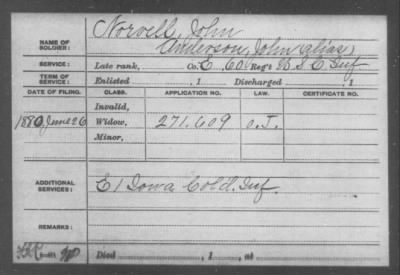 NAME OF SOLDIER: Norvell, John
Anderson, John (alias)
SERVICE: Late rank, Co. E, 60 Reg't U.S.C. Inf
TERM OF SERVICE: Enlisted , 1 Discharged , 1
DATE OF FILING. CLASS. APPLICATION NO. LAW. CERTIFICATE NO.
Invalid,
1880, June 26 Widow, 271.609 O.L.
Minor,
ADDITIONAL SERVICES: E 1 Iowa Col'd. Inf.
REMARKS:
Died , 1 , at